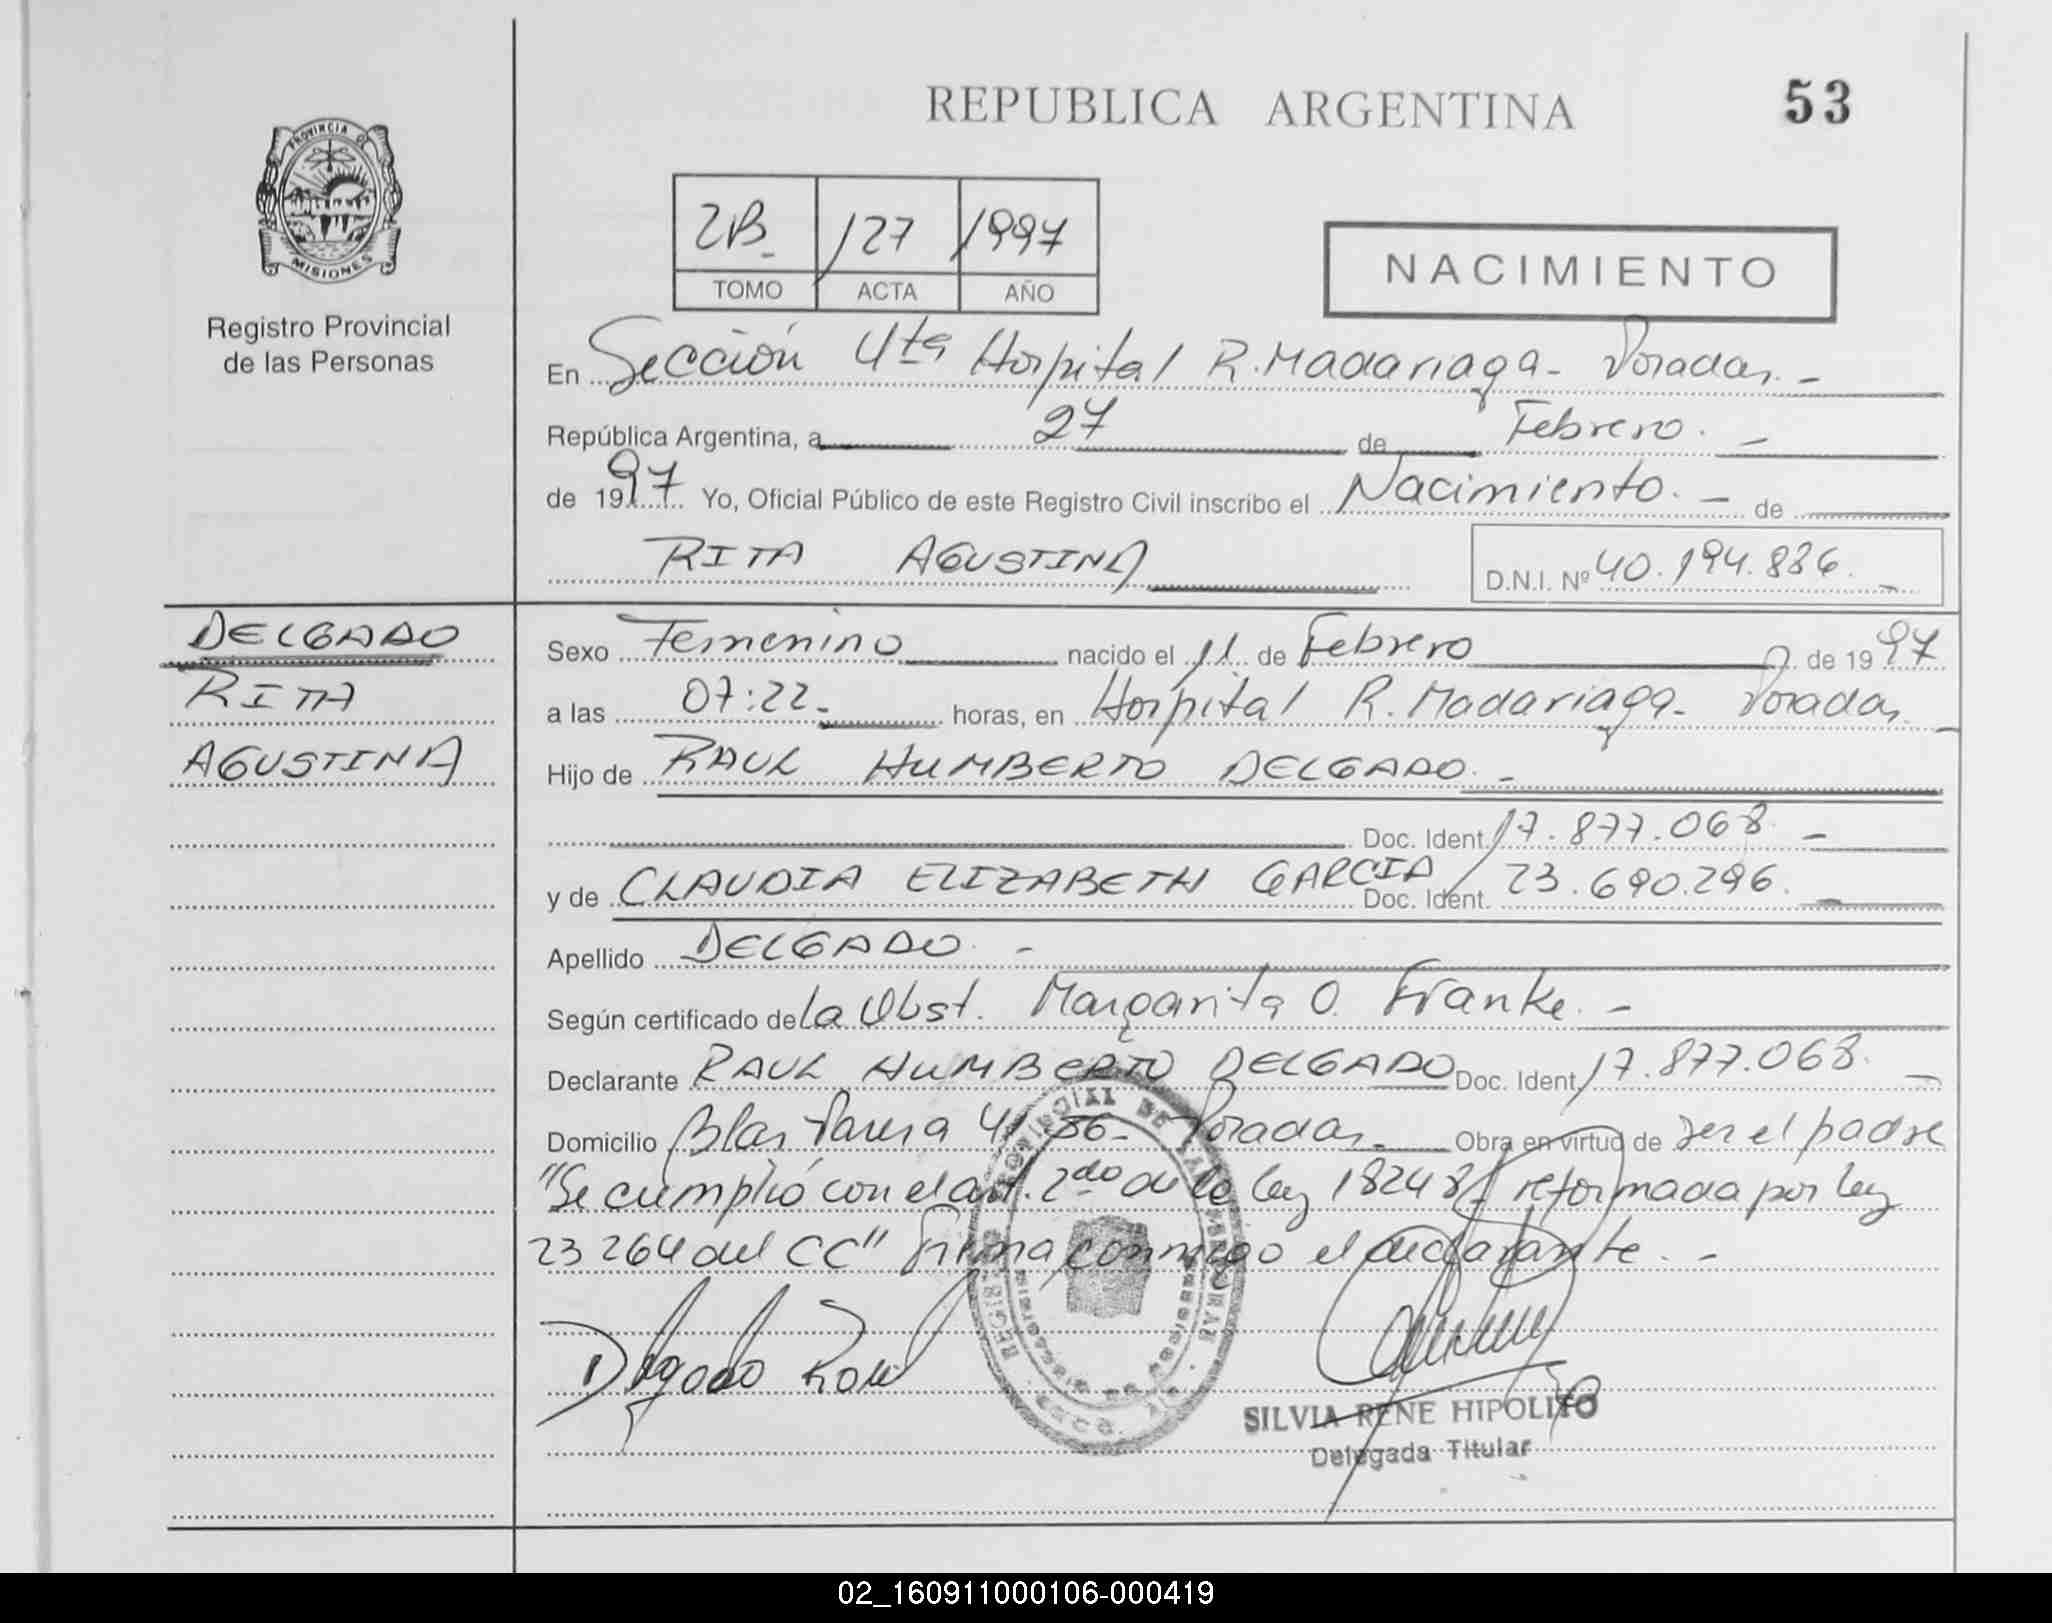 REPUBLICA ARGENTINA
53
PROVINCIA DE
MISIONES
Registro Provincial
de las Personas
2B
127
1997
TOMO
ACTA
AÑO
NACIMIENTO
En Sección 4ta Hospital R. Madariaga - Posadas. -
República Argentina, a 27 de Febrero. -
de 1997 Yo, Oficial Público de este Registro Civil inscribo el Nacimiento. - de
RITA AGUSTINA
D.N.I. Nº 40.194.886. -
DELGADO
RITA
AGUSTINA
Sexo Femenino nacido el 11 de Febrero de 1997
a las 07:22 - horas, en Hospital R. Madariaga - Posadas -
Hijo de RAUL HUMBERTO DELGADO. -
Doc. Ident. 17.877.068 -
y de CLAUDIA ELIZABETH GARCIA Doc. Ident. 23.690.296. -
Apellido DELGADO. -
Según certificado de la Obst. Margarita O. Franke. -
Declarante RAUL HUMBERTO DELGADO Doc. Ident. 17.877.068. -
Domicilio Blas Parera Posadas - Obra en virtud de ser el padre
"Se cumplió con el art. 2do de la ley 18248 reformada por ley
23264 del CC" Firma conmigo el declarante. -
Delgado Raul
SILVIA RENE HIPOLITO
Delegada Titular
02_160911000106-000419